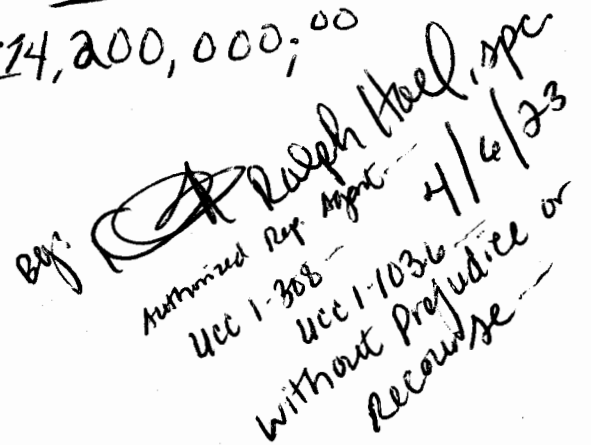 14,200,000;00
By: Ralph Hall, spc
Authorized Rep. Agent. 4/6/23
UCC 1-308
UCC 1-1036
without Prejudice or
Recourse